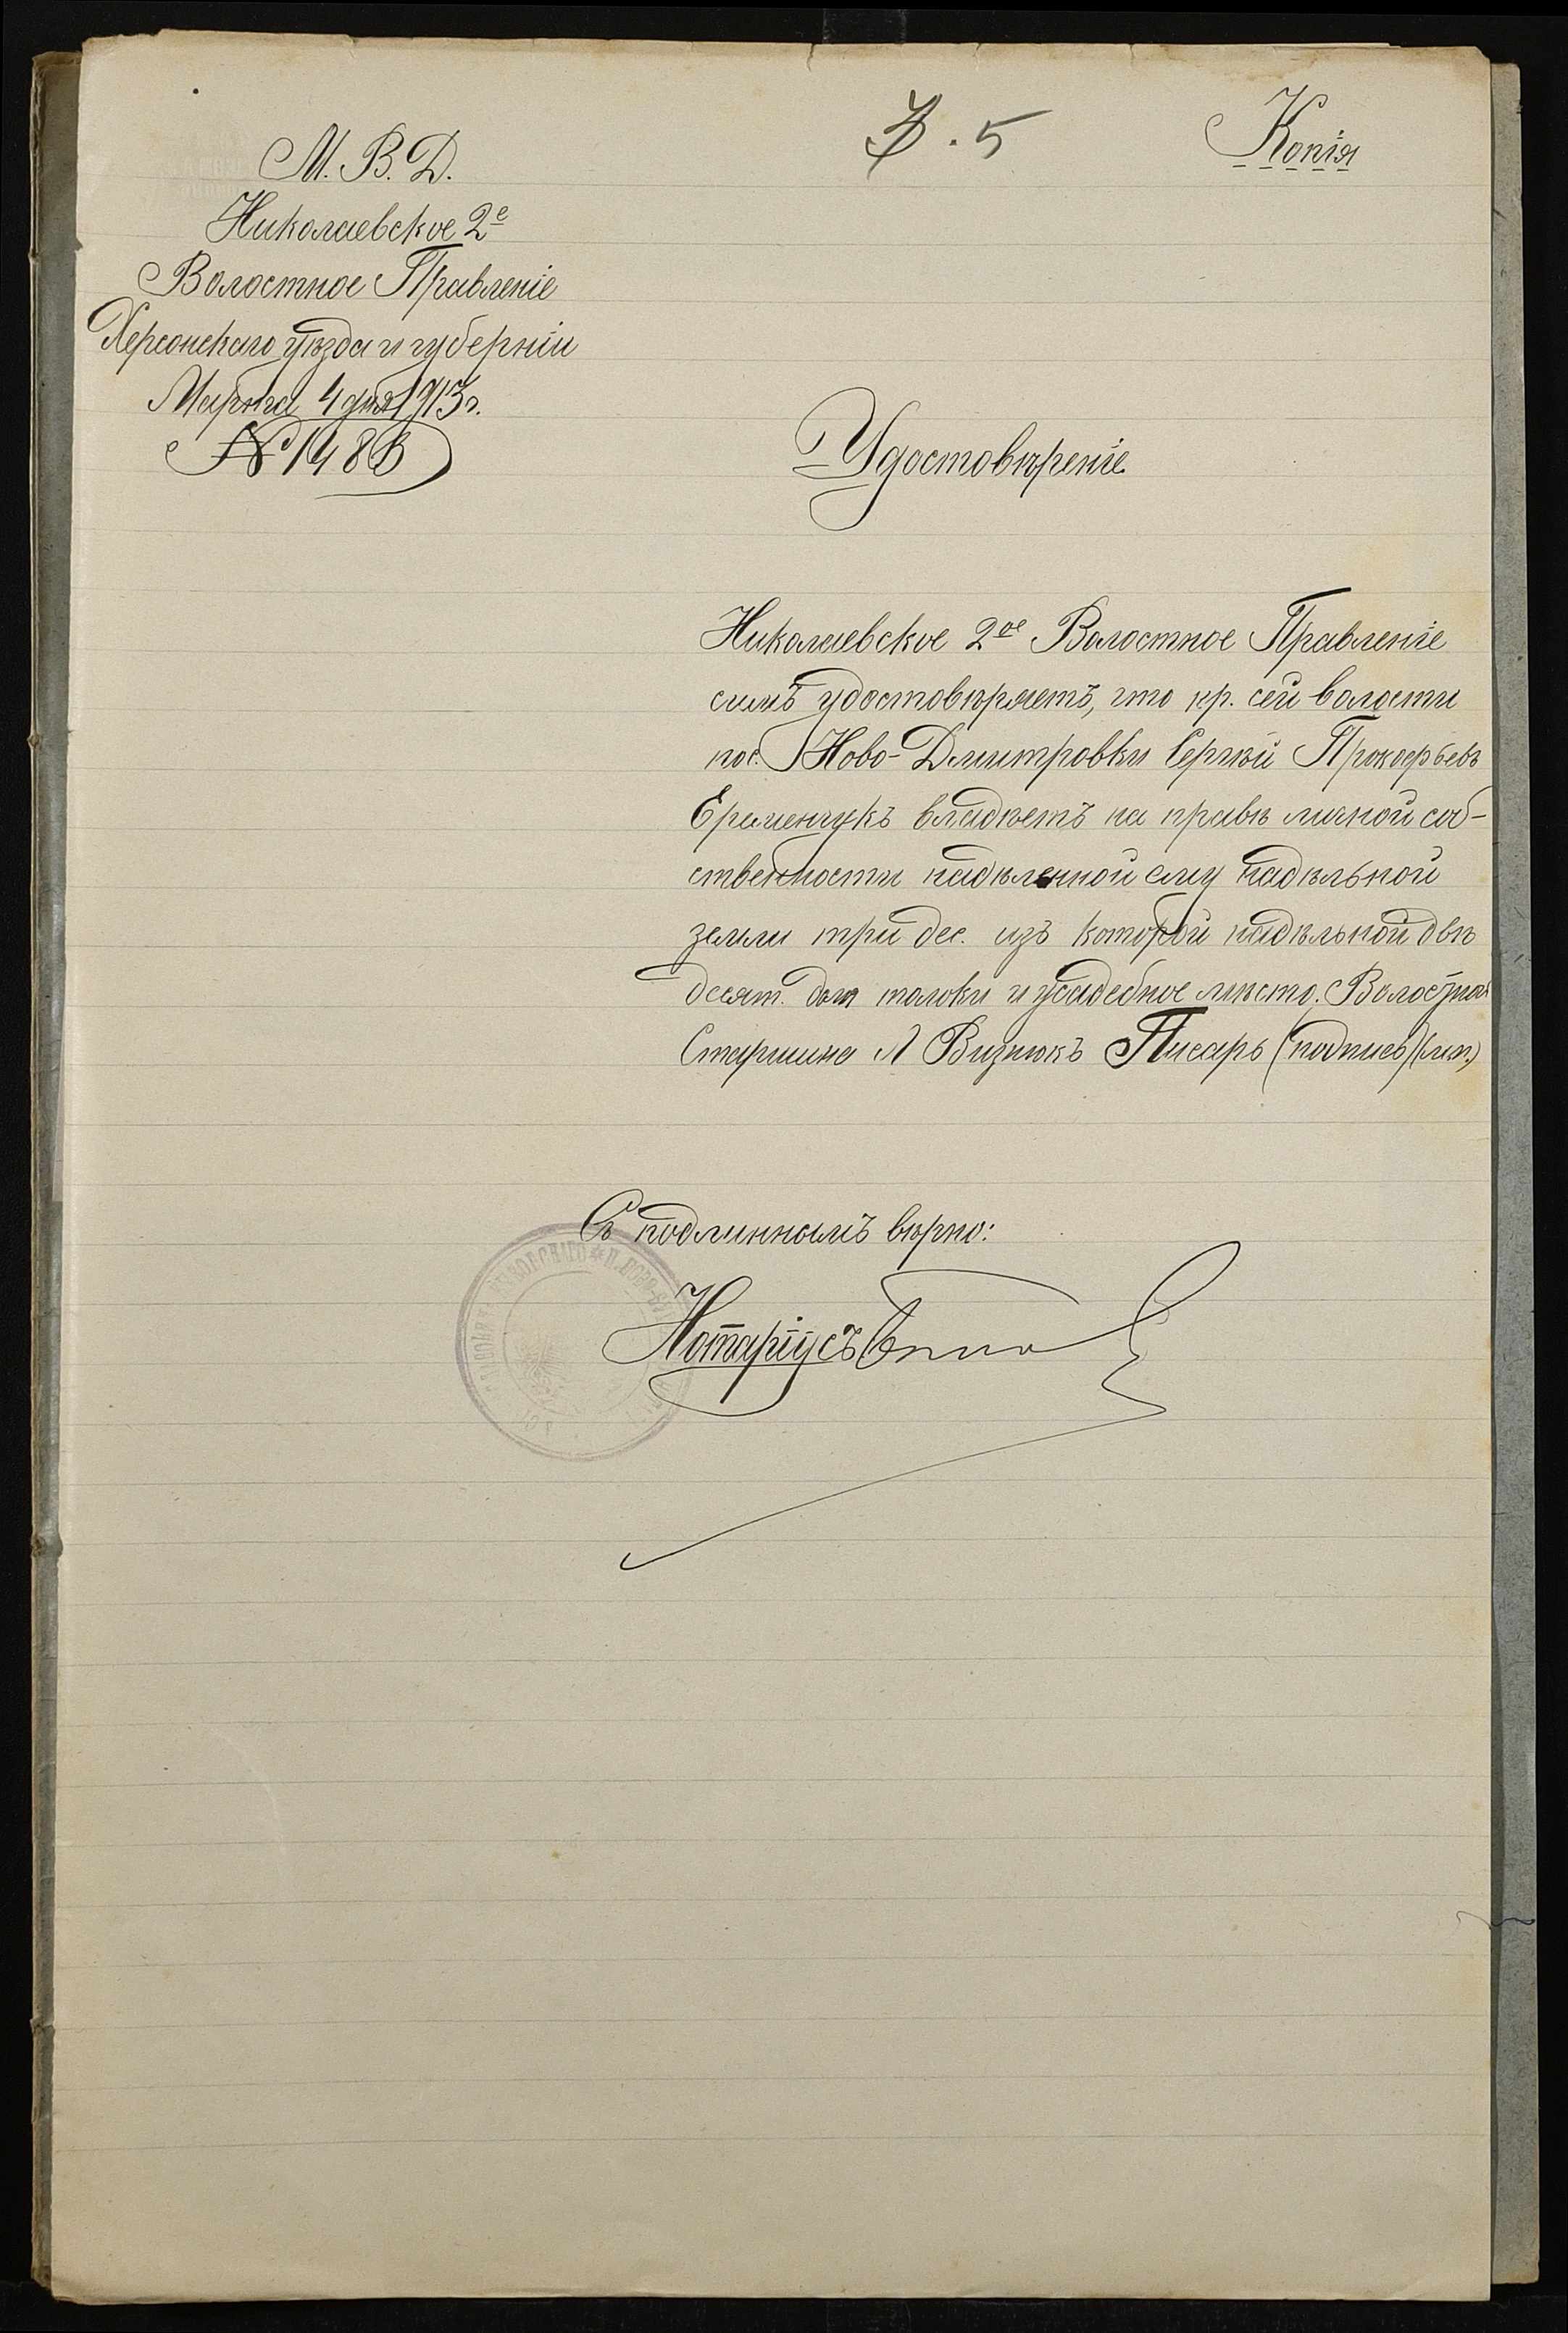 М. В. Д.
Николаевское 2е
Волостное Правленіе
Херсонскаго уѣзда и губерніи
Марта 4 дня 1913 г.
№ 1488
5
Копія
Удостовѣреніе
Николаевское 2ое Волостное Правленіе
симъ удостовѣряетъ, что кр. сей волости
пос. Ново-Дмитровки Сергѣй Прокофьевъ
Еременчукъ владѣетъ на правѣ личной соб-
ственности надѣленной ему надѣльной
земли три дес. изъ которой надѣльной двѣ
десят. толоки и усадебное мѣсто. Волостной
Старшина Л Визнюкъ Писарь (подпись) (м.п.)
Съ подлиннымъ вѣрно:
Нотаріусъ